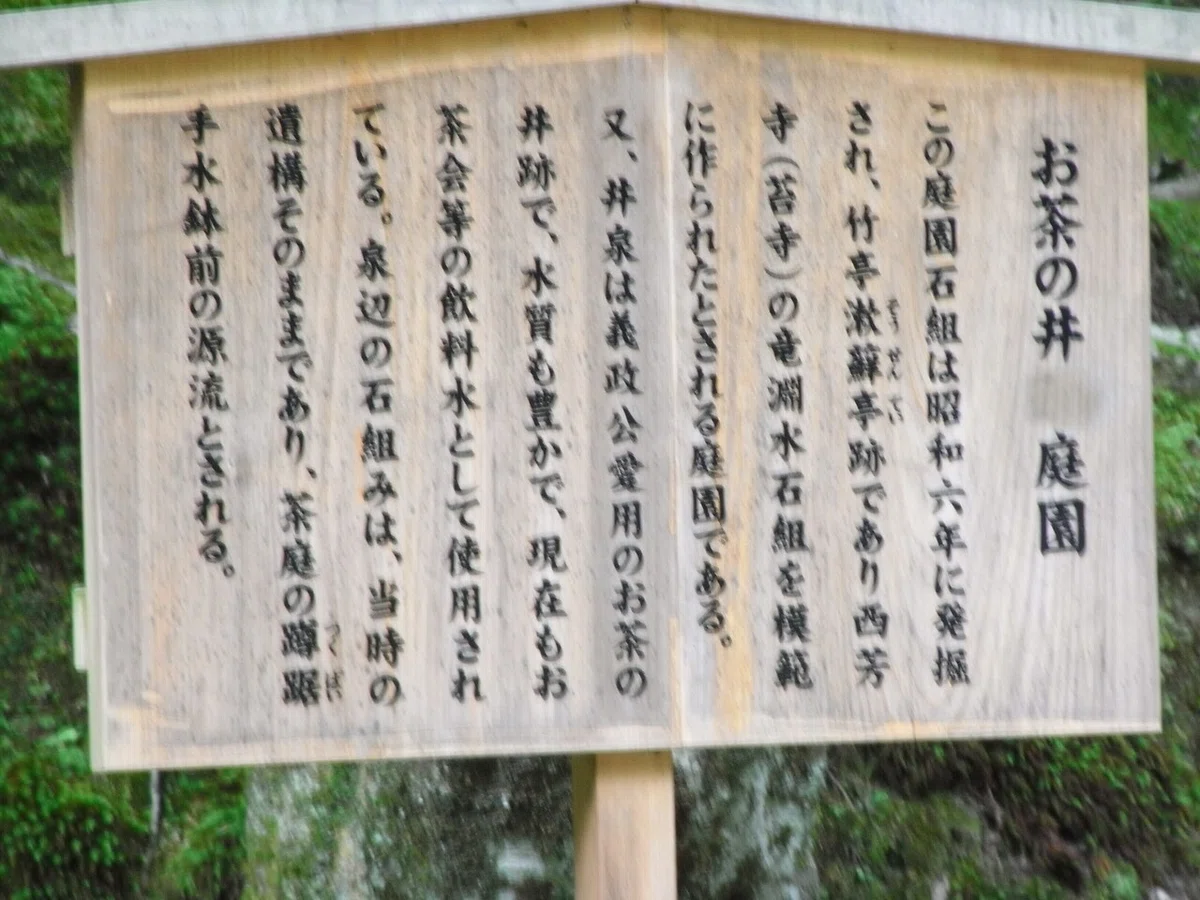 お茶の井 庭園
この庭園石組は昭和六年に発掘
され、竹亭漱蘇亭跡であり西芳
そうせんてい
寺（苔寺）の竜淵水石組を模範
に作られたとされる庭園である。
又、井泉は義政公愛用のお茶の
井跡で、水質も豊かで、現在もお
茶会等の飲料水として使用され
ている。泉辺の石組みは、当時の
遺構そのままであり、茶庭の蹲踞
つくばい
手水鉢前の源流とされる。